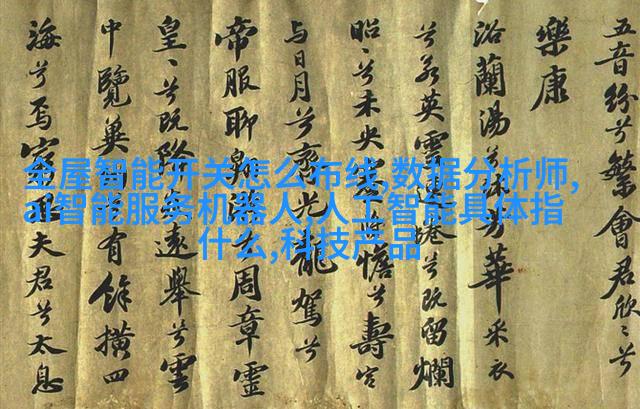 五音紛兮繁會君欣〻兮
樂康
浴蘭湯兮沐芳華采衣
兮若英靈兮既留爛
昭〻兮未央憺兮壽宮
与日月兮齊光龍駕兮
帝服聊周章靈
皇〻兮既遠舉兮雲
中覽冀有餘橫四
海兮焉窮夫君兮太息
全屋智能开关怎么布线,数据分析师,
ai智能服务机器人,人工智能具体指
什么,科技产品